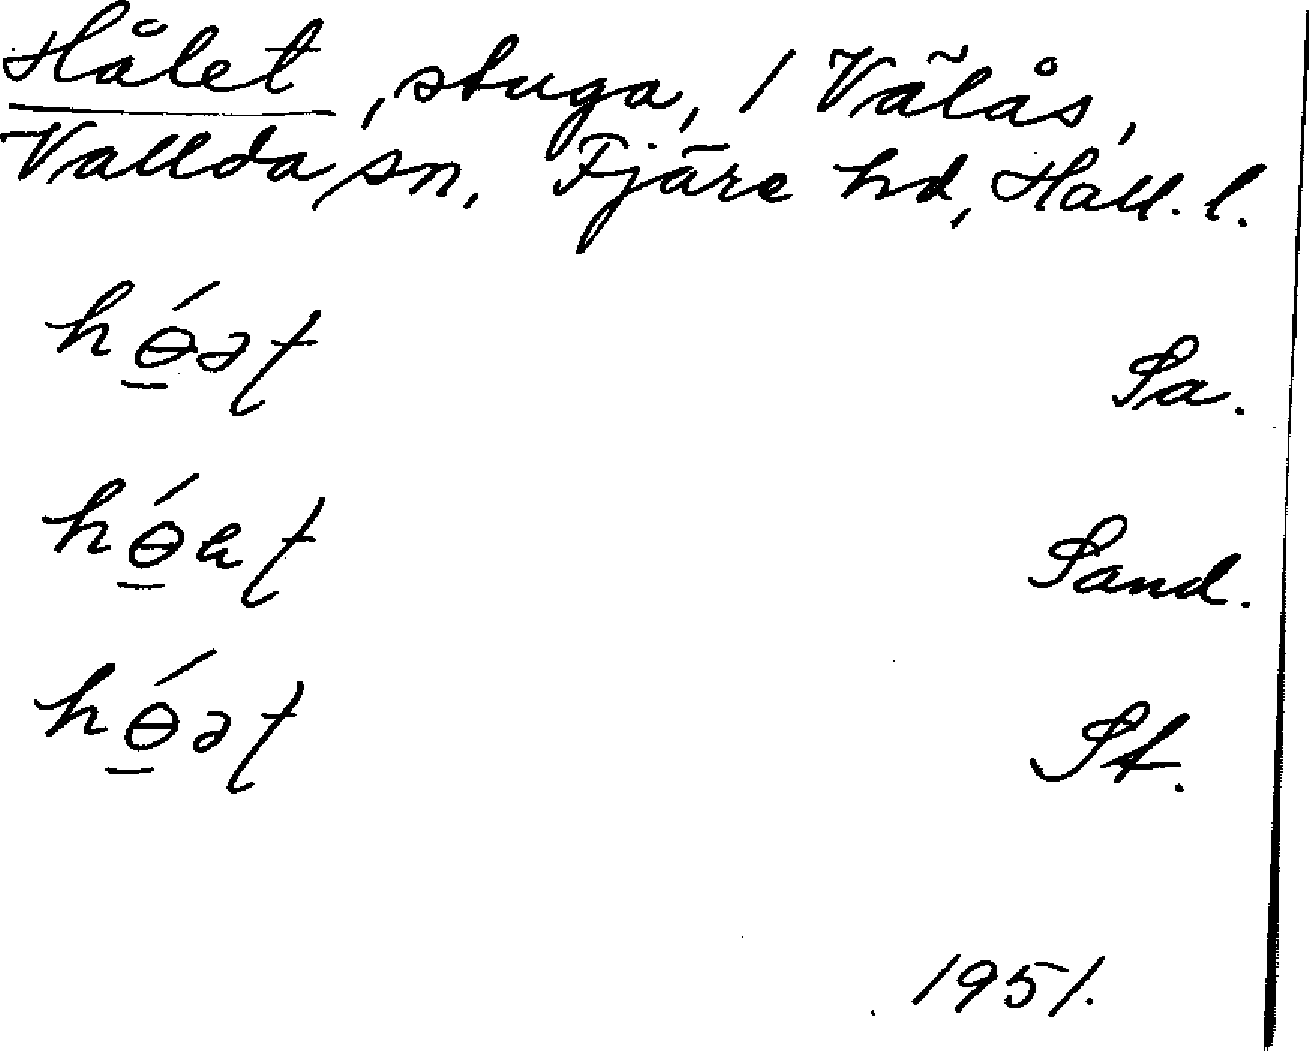 Hålet, stuga, / Välås,
Vallda sn. Fjäre hd, Hall. l.
hɵ̲́əʈ Sa.
hɵ̲́aʈ Sand.
hɵ̲́əʈ St.
1951.